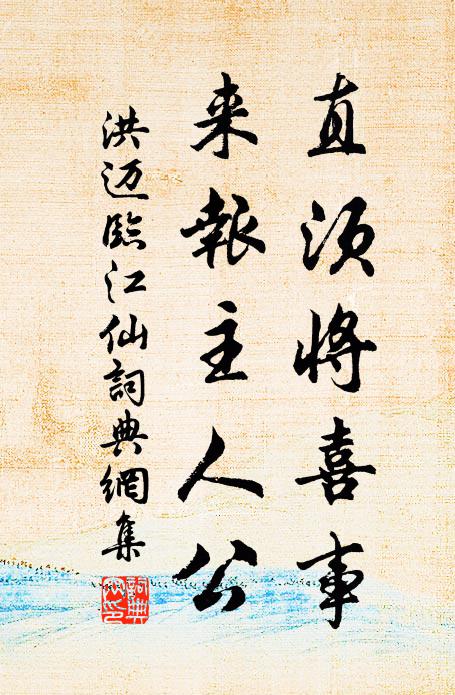 直须将喜事
来報主人公
洪迈臨江仙詞典網集